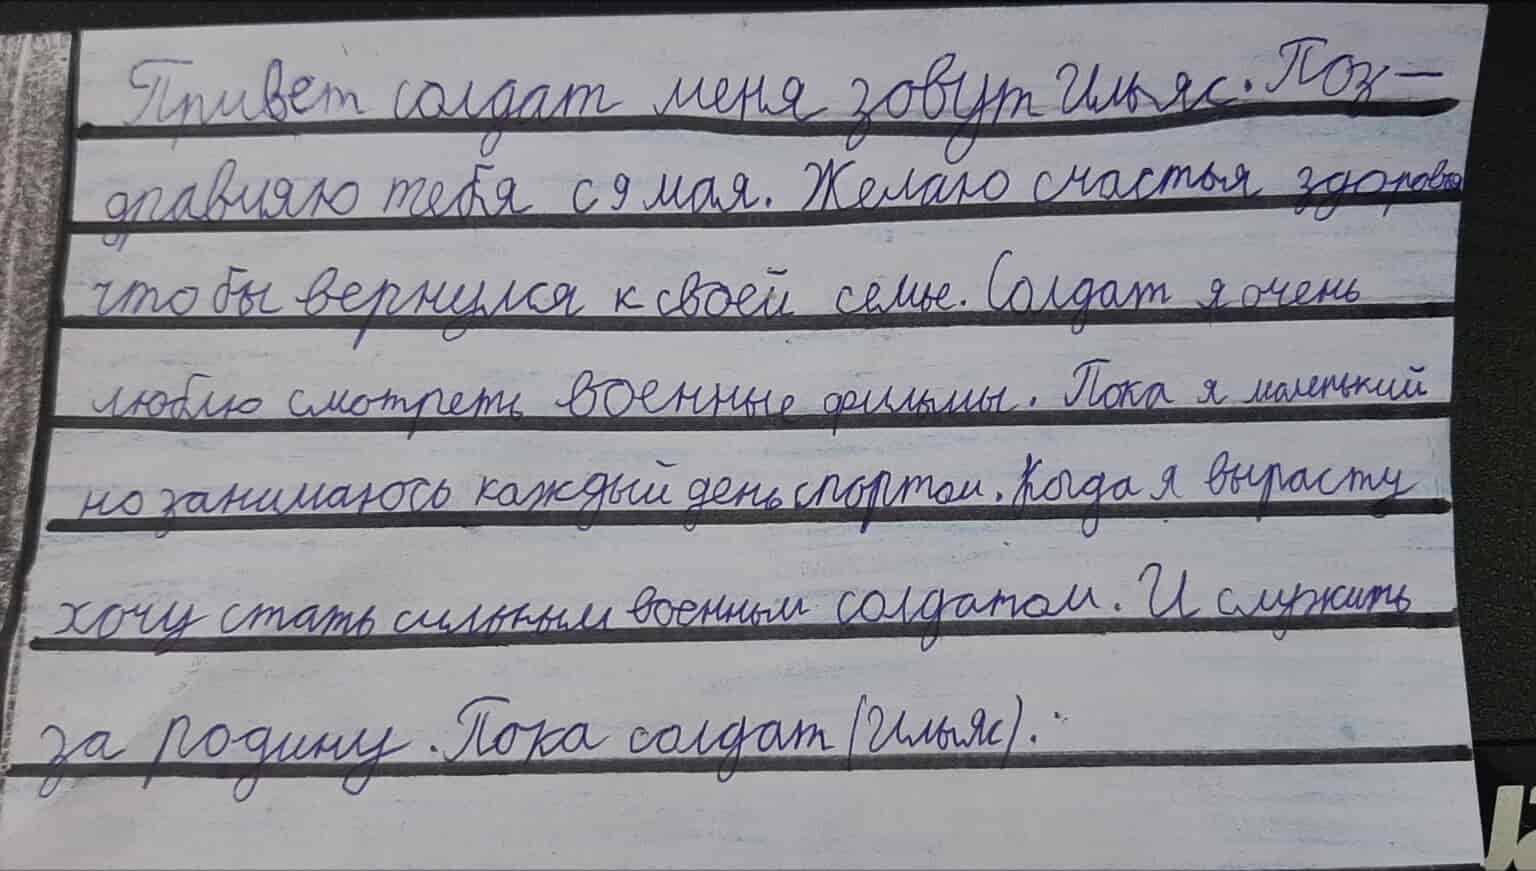 Привет солдат меня зовут Ильяс. Поз-
дравляю тебя с 9 мая. Желаю счастья здоровья
чтобы вернулся к своей семье. Солдат я очень
люблю смотреть военные фильмы. Пока я маленький
но занимаюсь каждый день спортом. Когда я вырасту
хочу стать сильным военным солдатом. И служить
за родину. Пока солдат (Ильяс).